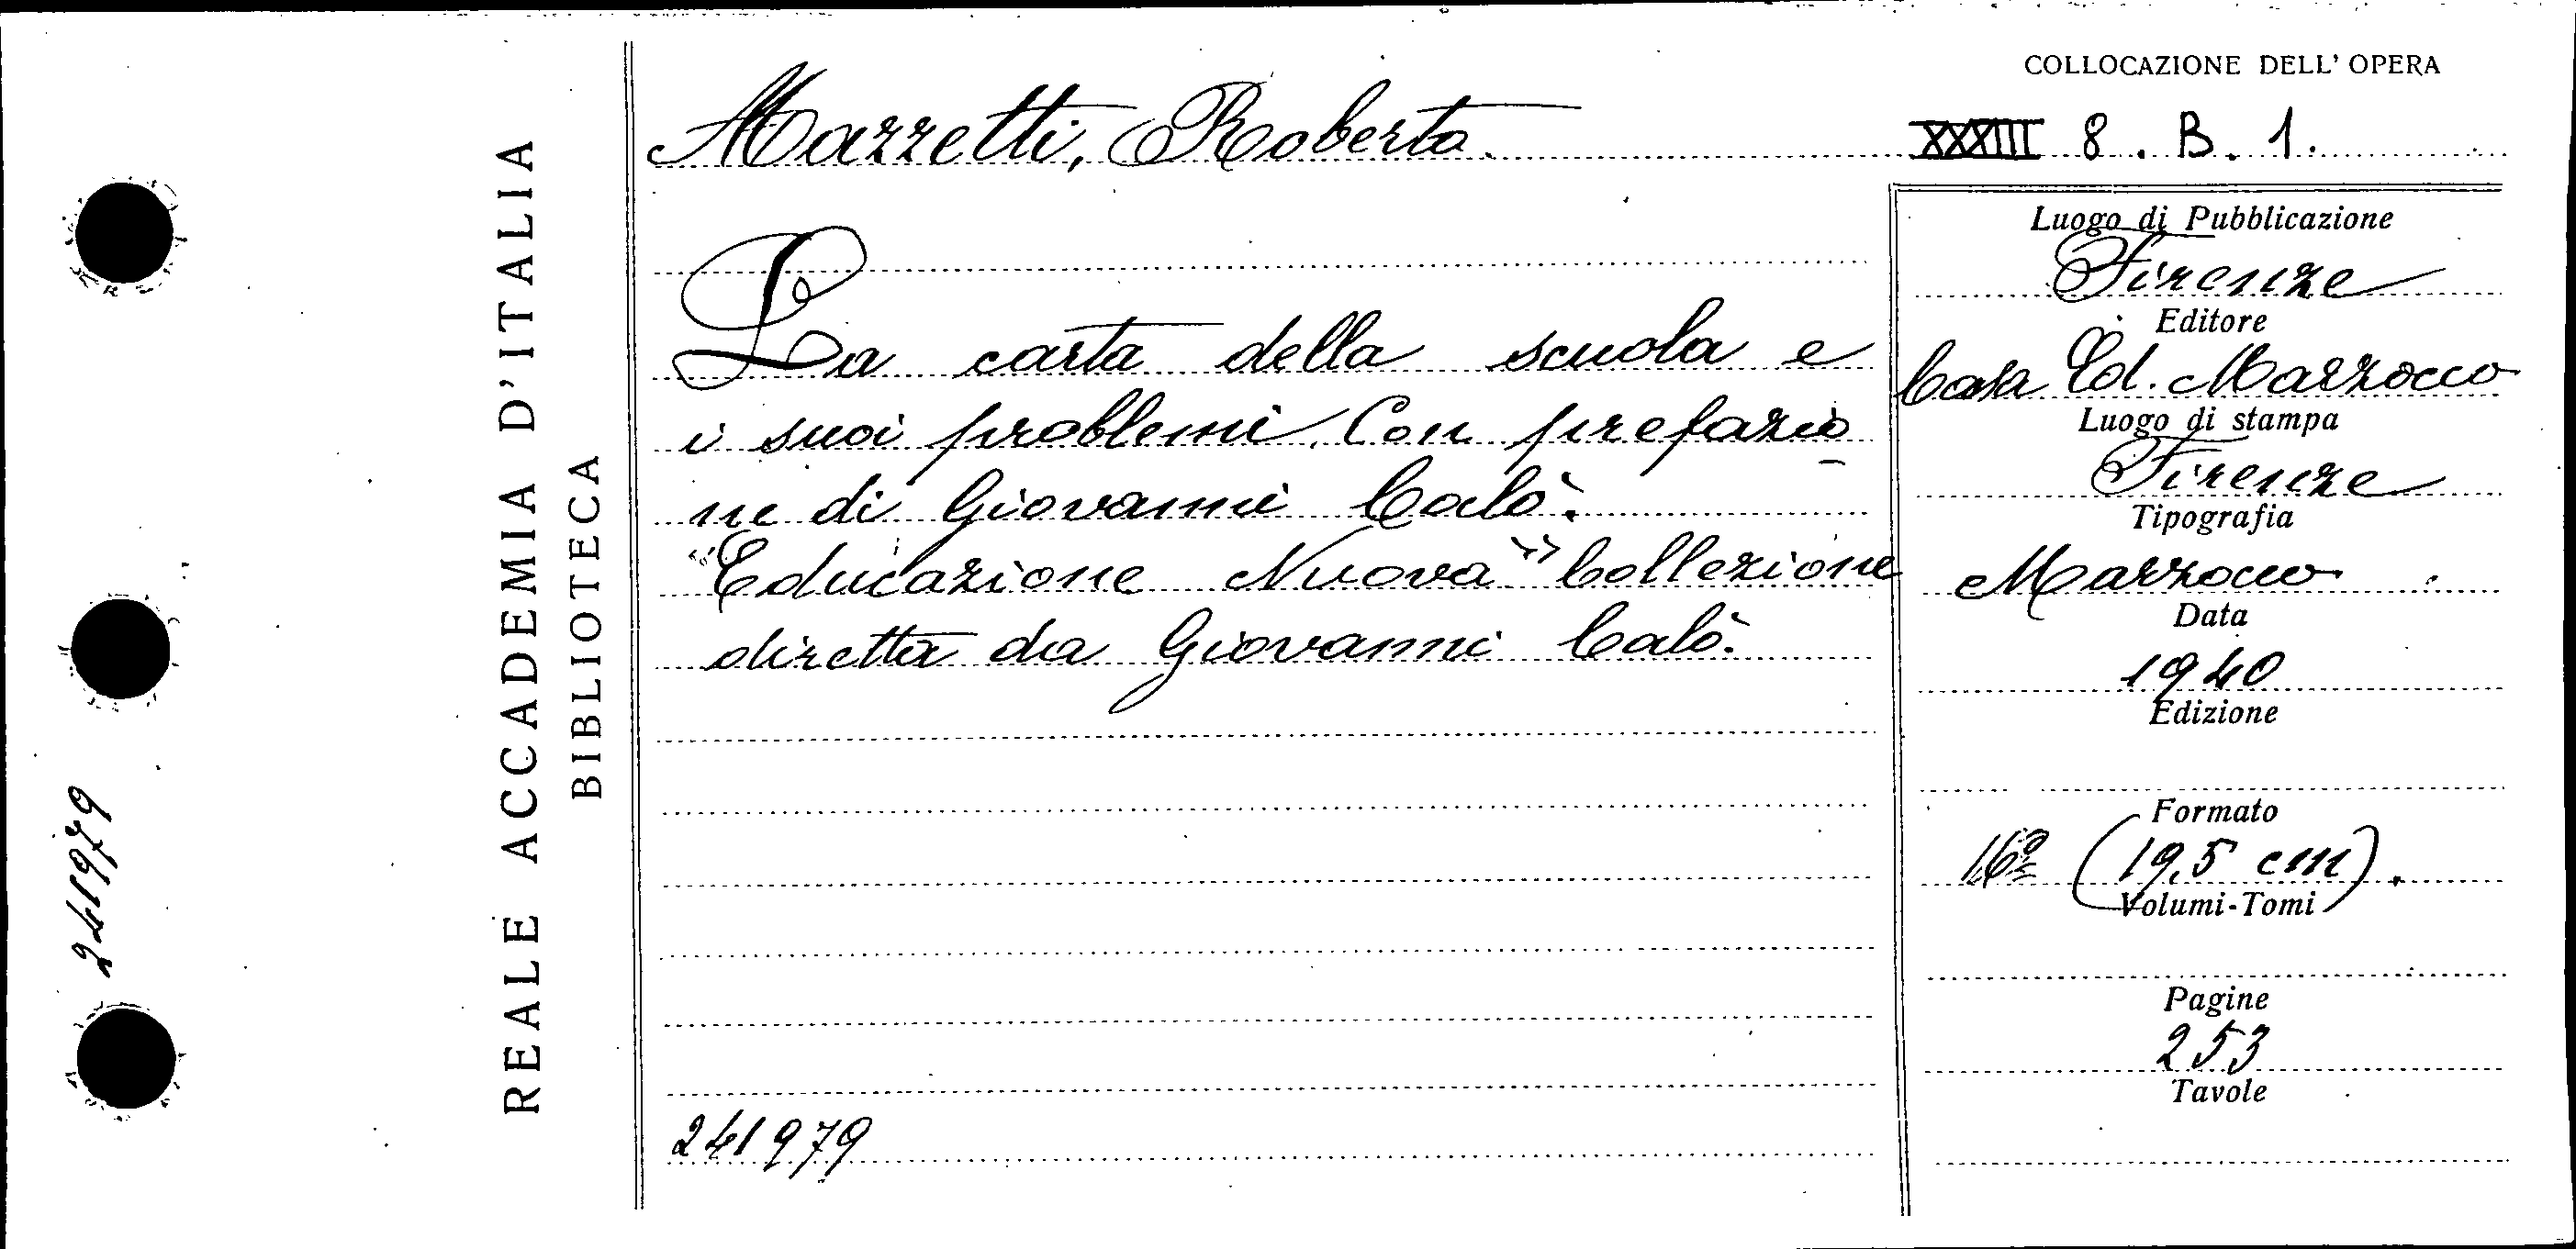 COLLOCAZIONE DELL' OPERA
Mazzetti, Roberto.
XXXIII 8. B. 1.
REALE ACCADEMIA D'ITALIA
BIBLIOTECA
La carta della scuola e
i suoi problemi. Con prefazio
ne di Giovanni Calò.
"Educazione Nuova" Collezione
diretta da Giovanni Calò.
241979
Luogo di Pubblicazione
Firenze
Editore
Casa Ed. Marzocco
Luogo di stampa
Firenze
Tipografia
Marzocco
Data
1940
Edizione
Formato
16º (19,5 cm).
Volumi-Tomi
Pagine
253
Tavole
241979